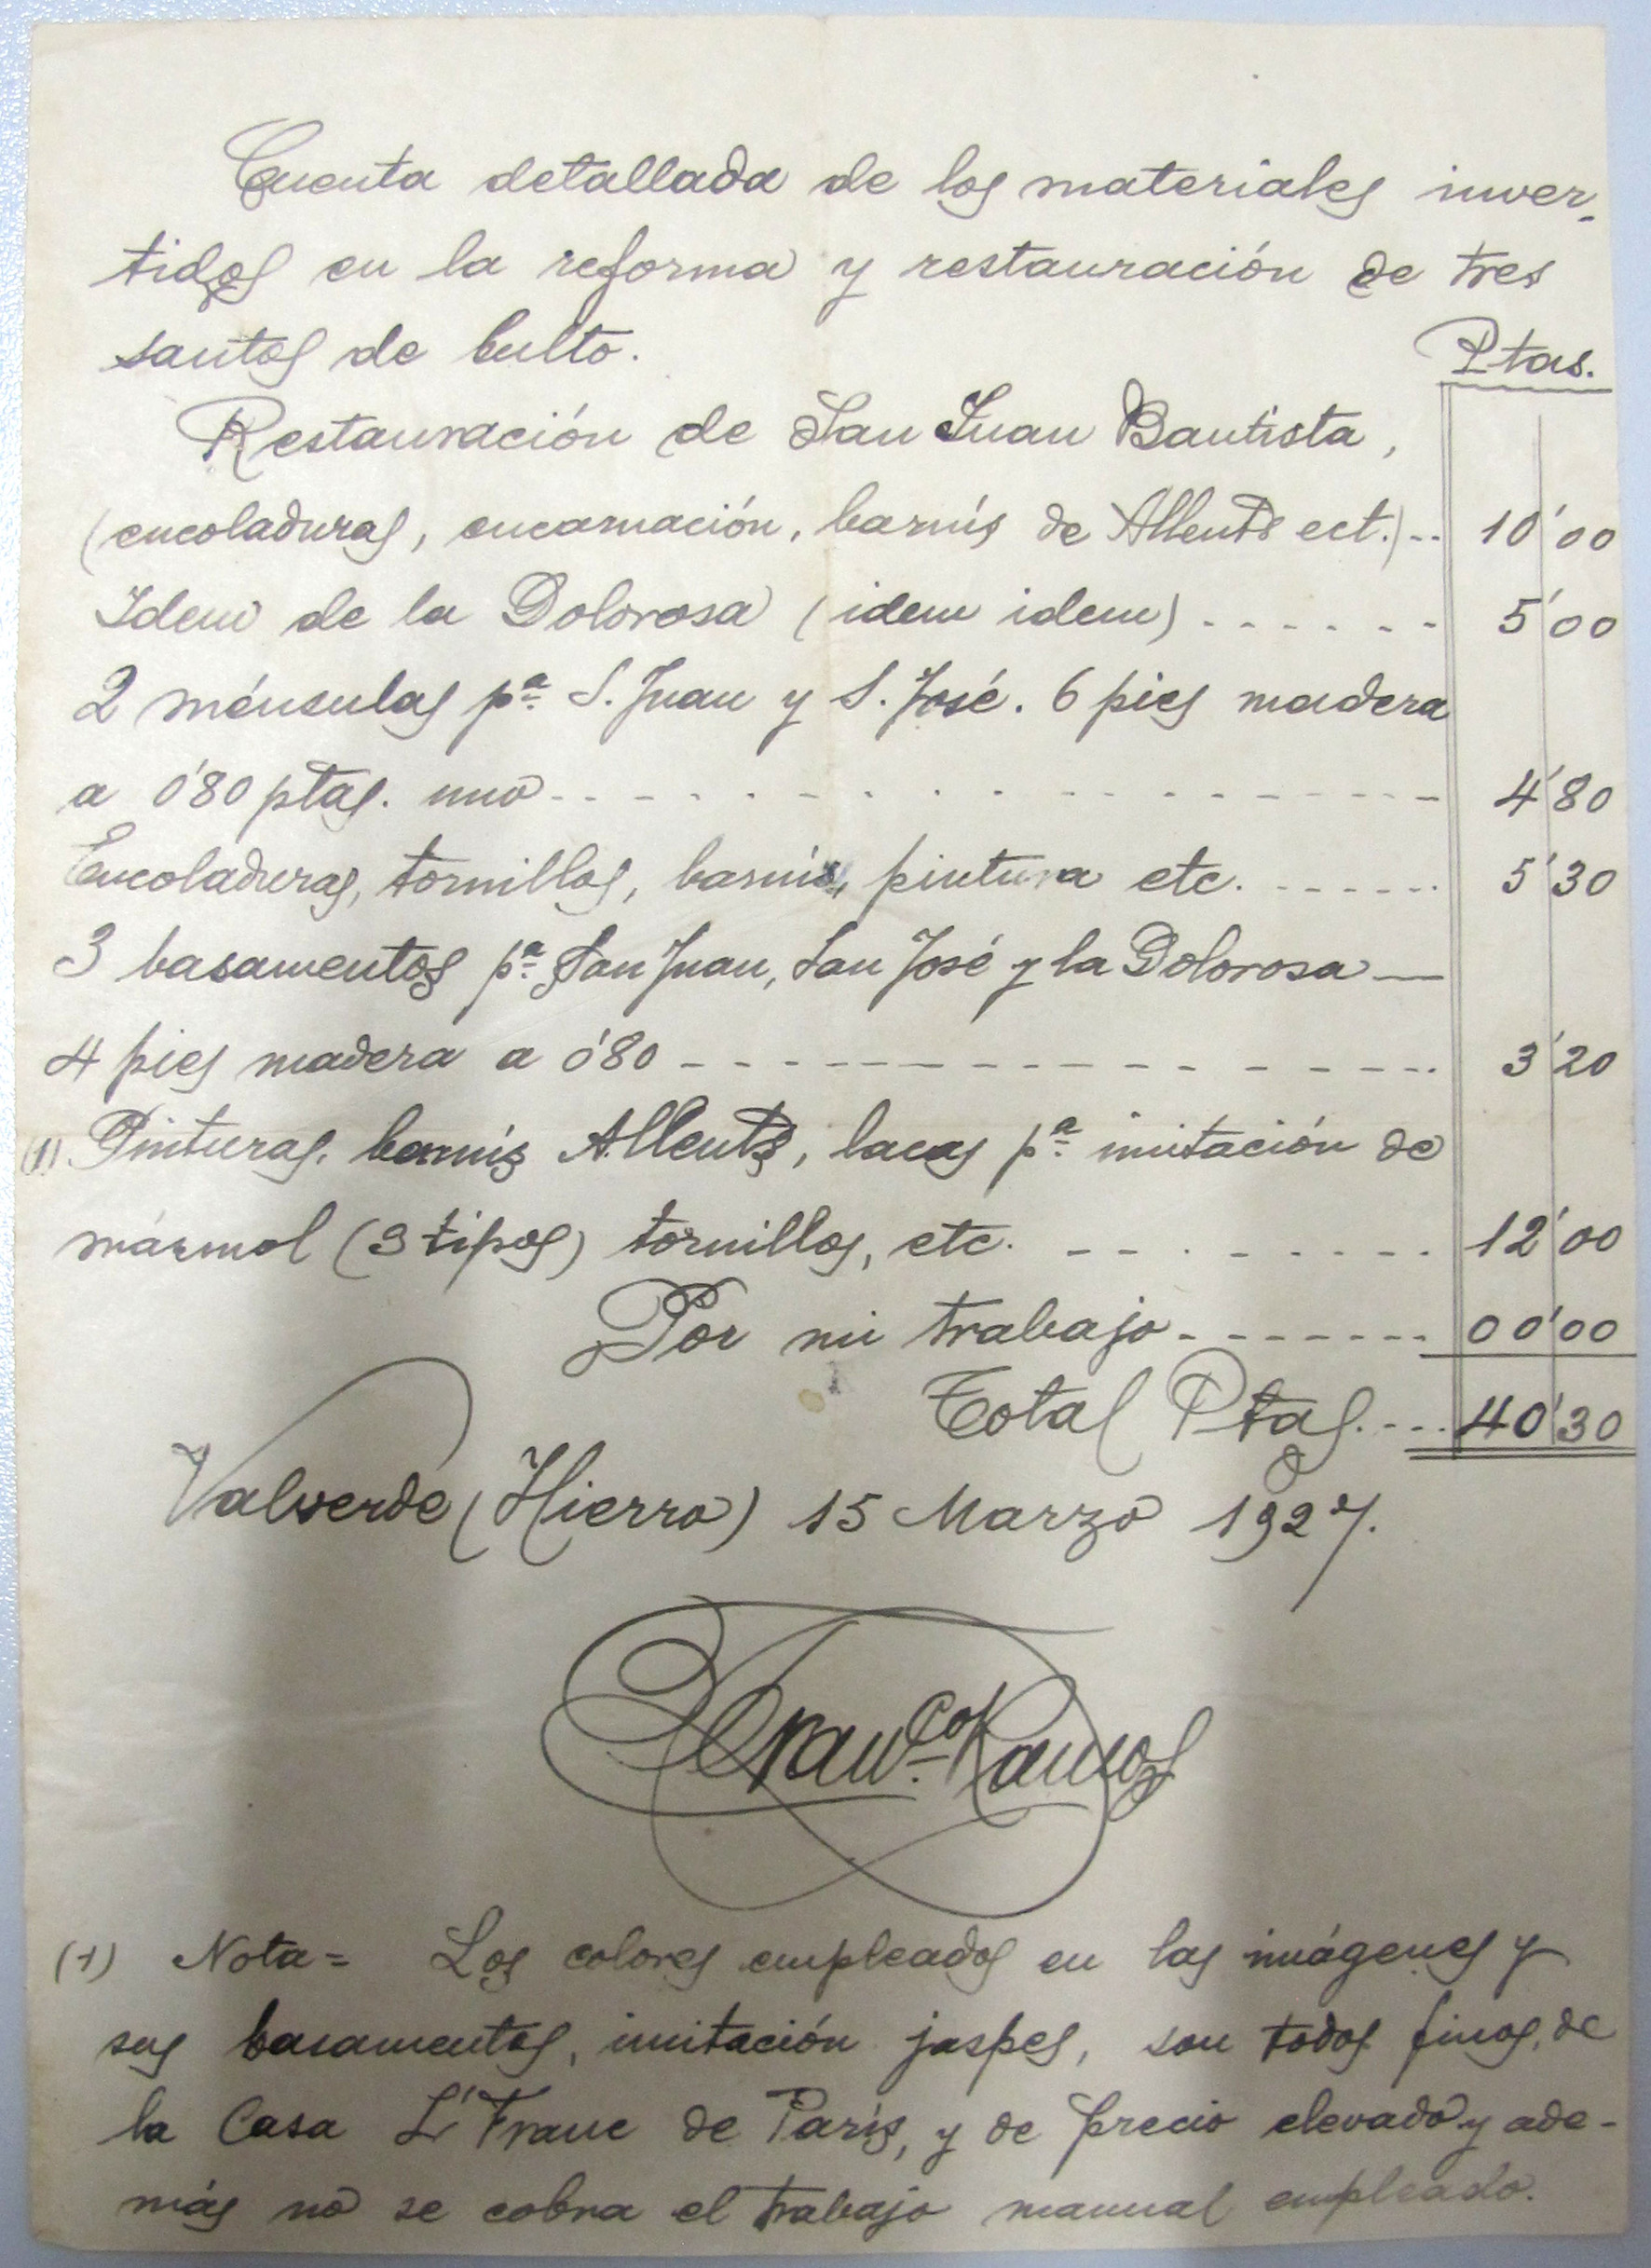 Cuenta detallada de los materiales inver-
tidos en la reforma y restauración de tres
santos de bulto.
Ptas.
Restauración de San Juan Bautista,
(encoladuras, encarnación, barnís de Allents ect.) .. 10'00
Idem de la Dolorosa (idem idem) . . . . . . 5'00
2 ménsulas pª S. Juan y S. José. 6 pies madera
a 0'80 ptas. uno - - - - - - - - - - - - - - - 4'80
Encoladuras, tornillos, barnís, pintura etc. - - - - - - 5'30
3 basamentos pª San Juan, San José y la Dolorosa —
4 pies madera a 0'80 - - - - - - - - - - - - - - 3'20
(1) Pinturas, barnís Allents, lacas pª imitación de
mármol (3 tipos) tornillos, etc. - - - - - - - - 12'00
Por mi trabajo - - - - - - - 00'00
Total Ptas. - - - 40'30
Valverde (Hierro) 15 Marzo 1927.
Franco Ramos
(1) Nota = Los colores empleados en las imágenes y
sus basamentos, imitación jaspes, son todos finos, de
la Casa L'Franc de París, y de precio elevado y ade-
más no se cobra el trabajo manual empleado.